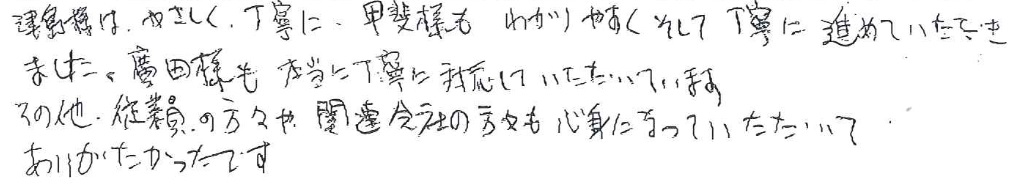 津島様は、やさしく、丁寧に、甲斐様も わかりやすく そして 丁寧に 進めていただき
ました。廣田様も 本当に丁寧に対応していただいています
その他、従業員の方々や 関連会社の方々も 心身になっていただいて
ありがたかったです